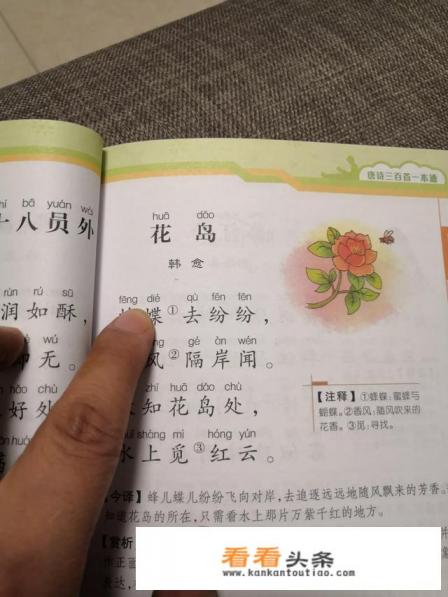 唐诗三百首一本通
bā yuán wài
十八员外
rùn rú sū
润如酥，
无。
hǎo chù
好处
huā dǎo
花岛
韩愈
fēng dié qù fēn fēn
蝶①去纷纷，
gé àn wén
风②隔岸闻。
zhī huā dǎo chù
知花岛处，
shàng mì hóng yún
水上觅③红云。
【注释】①蜂蝶：蜜蜂与
蝴蝶。②香风：随风吹来的
花香。③觅：寻找。
【今译】蜂儿蝶儿纷纷飞向对岸，去追逐远远地随风飘来的芳香。
知道花岛的所在，只需看水上那片万紫千红的地方。
【赏析】
作正面
表达，
看看头条
www.kankantoutiao.com